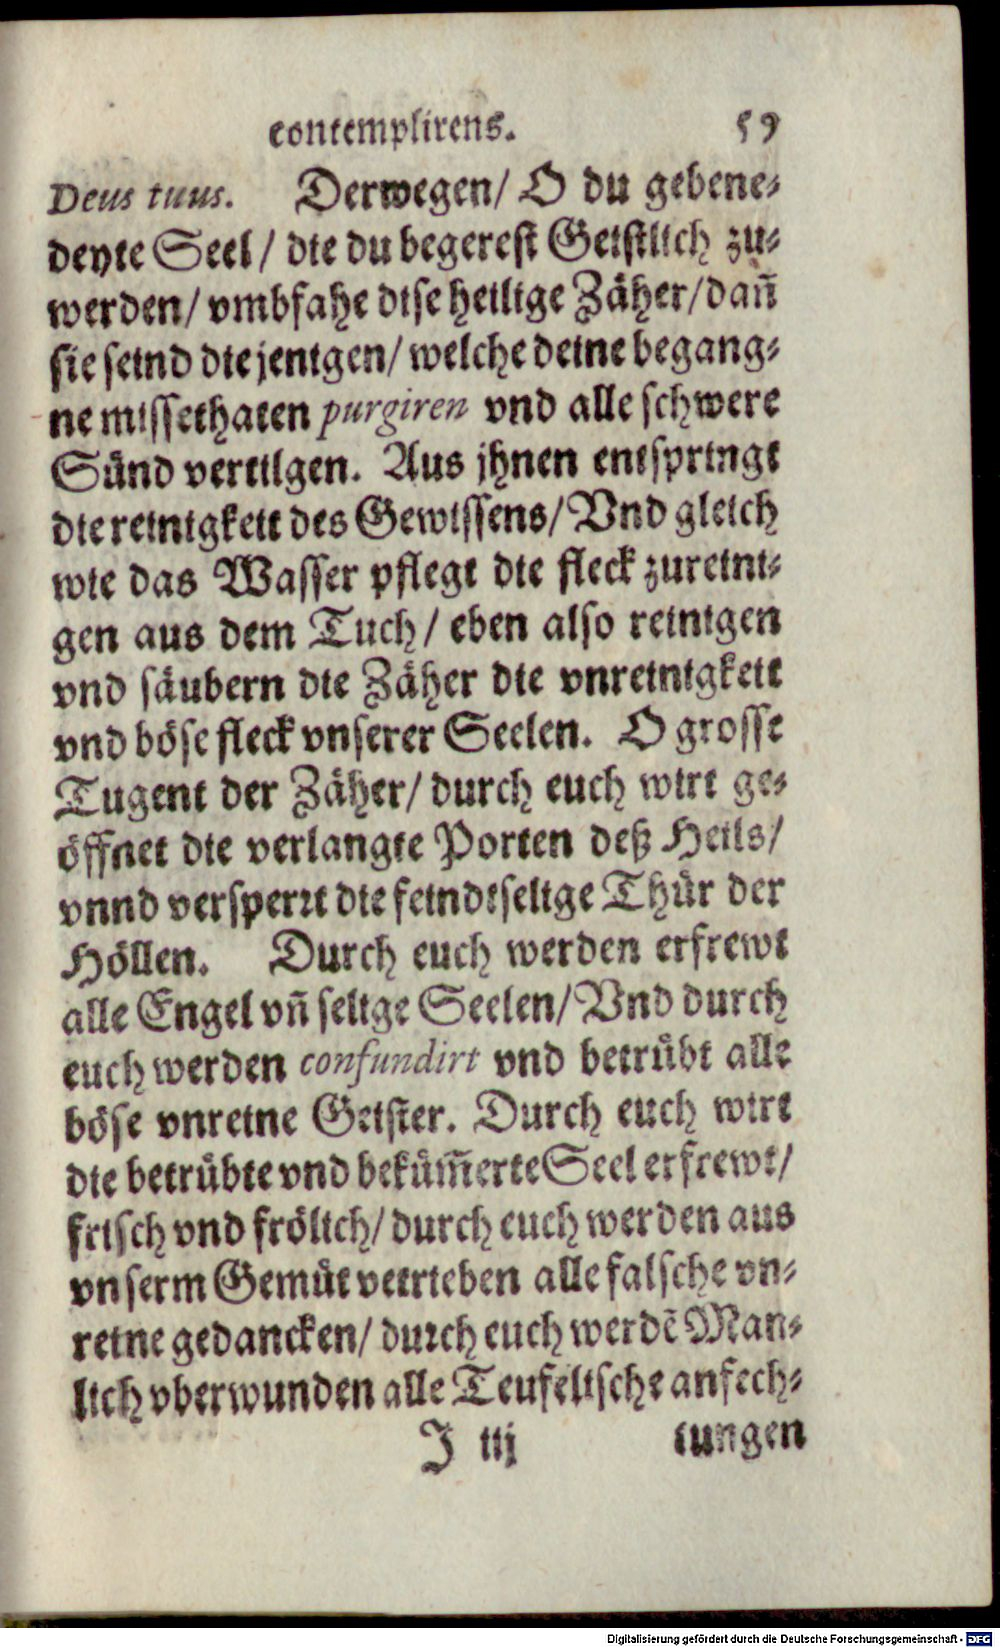 contemplirens. 59
Deus tuus. Derwegen/ O du gebene-
deyte Seel/ die du begerest Geistlich zu-
werden/ vmbfahe dise heilige Zäher/ dañ
sie seind die jenigen/ welche deine begang-
ne missethaten purgiren vnd alle schwere
Sünd vertilgen. Aus jhnen entspringt
die reinigkeit des Gewissens/ Vnd gleich
wie das Wasser pflegt die fleck zureini-
gen aus dem Tuch/ eben also reinigen
vnd säubern die Zäher die vnreinigkeit
vnd böse fleck vnserer Seelen. O grosse
Tugent der Zäher/ durch euch wirt ge-
öffnet die verlangte Porten deß Heils/
vnnd versperrt die feindtselige Thür der
Höllen. Durch euch werden erfrewt
alle Engel vñ selige Seelen/ Vnd durch
euch werden confundirt vnd betrübt alle
böse vnreine Geister. Durch euch wirt
die betrübte vnd beküm̃erte Seel erfrewt/
frisch vnd frölich/ durch euch werden aus
vnserm Gemüt vertrieben alle falsche vn-
reine gedancken/ durch euch werdẽ Man-
lich vberwunden alle Teufelische anfech-
J iij tungen
Digitalisierung gefördert durch die Deutsche Forschungsgemeinschaft - DFG